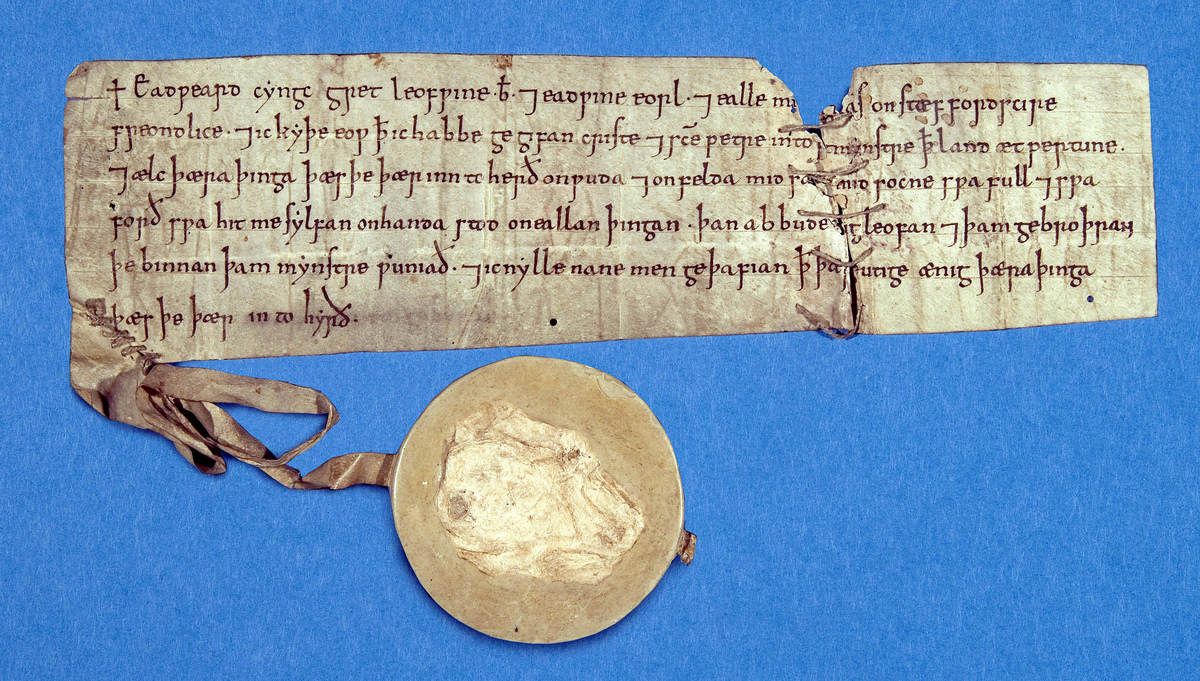 + Eadƿeard cyngc gret leofƿine .b̄. ⁊ eadƿine eorl . ⁊ ealle mi as on stæfford scire
freondlice . ⁊ ic kyþe eoƿ ꝥ ic habbe ge gyfan criste ⁊ sc̄e petre into mynstre ꝥ land æt pertune .
⁊ ælc þæra þinga þæs þe þær inn to herð on ƿuda ⁊ on felda mid sa and socne sƿa full ⁊ sƿa
forð sƿa hit me sylfan on handa stod on eallan þingan . þan abbude leofan ⁊ þam gebroþran
þe binnan þam mynstre ƿuniað . ⁊ ic nylle nane men geþafian ꝥ þær utige ænig þæra þinga
þæs þe þær in to hyrð .